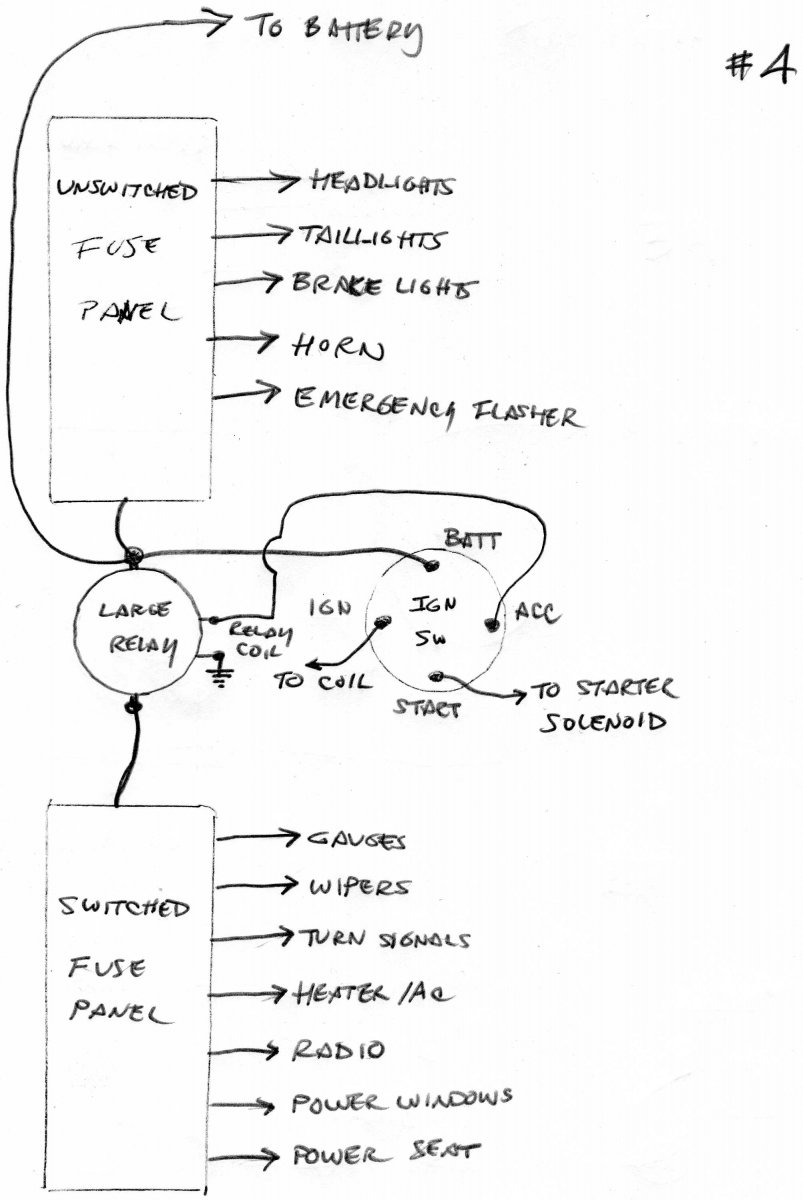 TO BATTERY
#4
UNSWITCHED
FUSE
PANEL
HEADLIGHTS
TAILLIGHTS
BRAKE LIGHTS
HORN
EMERGENCY FLASHER
BATT
IGN
IGN
SW
ACC
LARGE
RELAY
RELAY
COIL
TO COIL
START
TO STARTER
SOLENOID
SWITCHED
FUSE
PANEL
GAUGES
WIPERS
TURN SIGNALS
HEATER/AC
RADIO
POWER WINDOWS
POWER SEAT